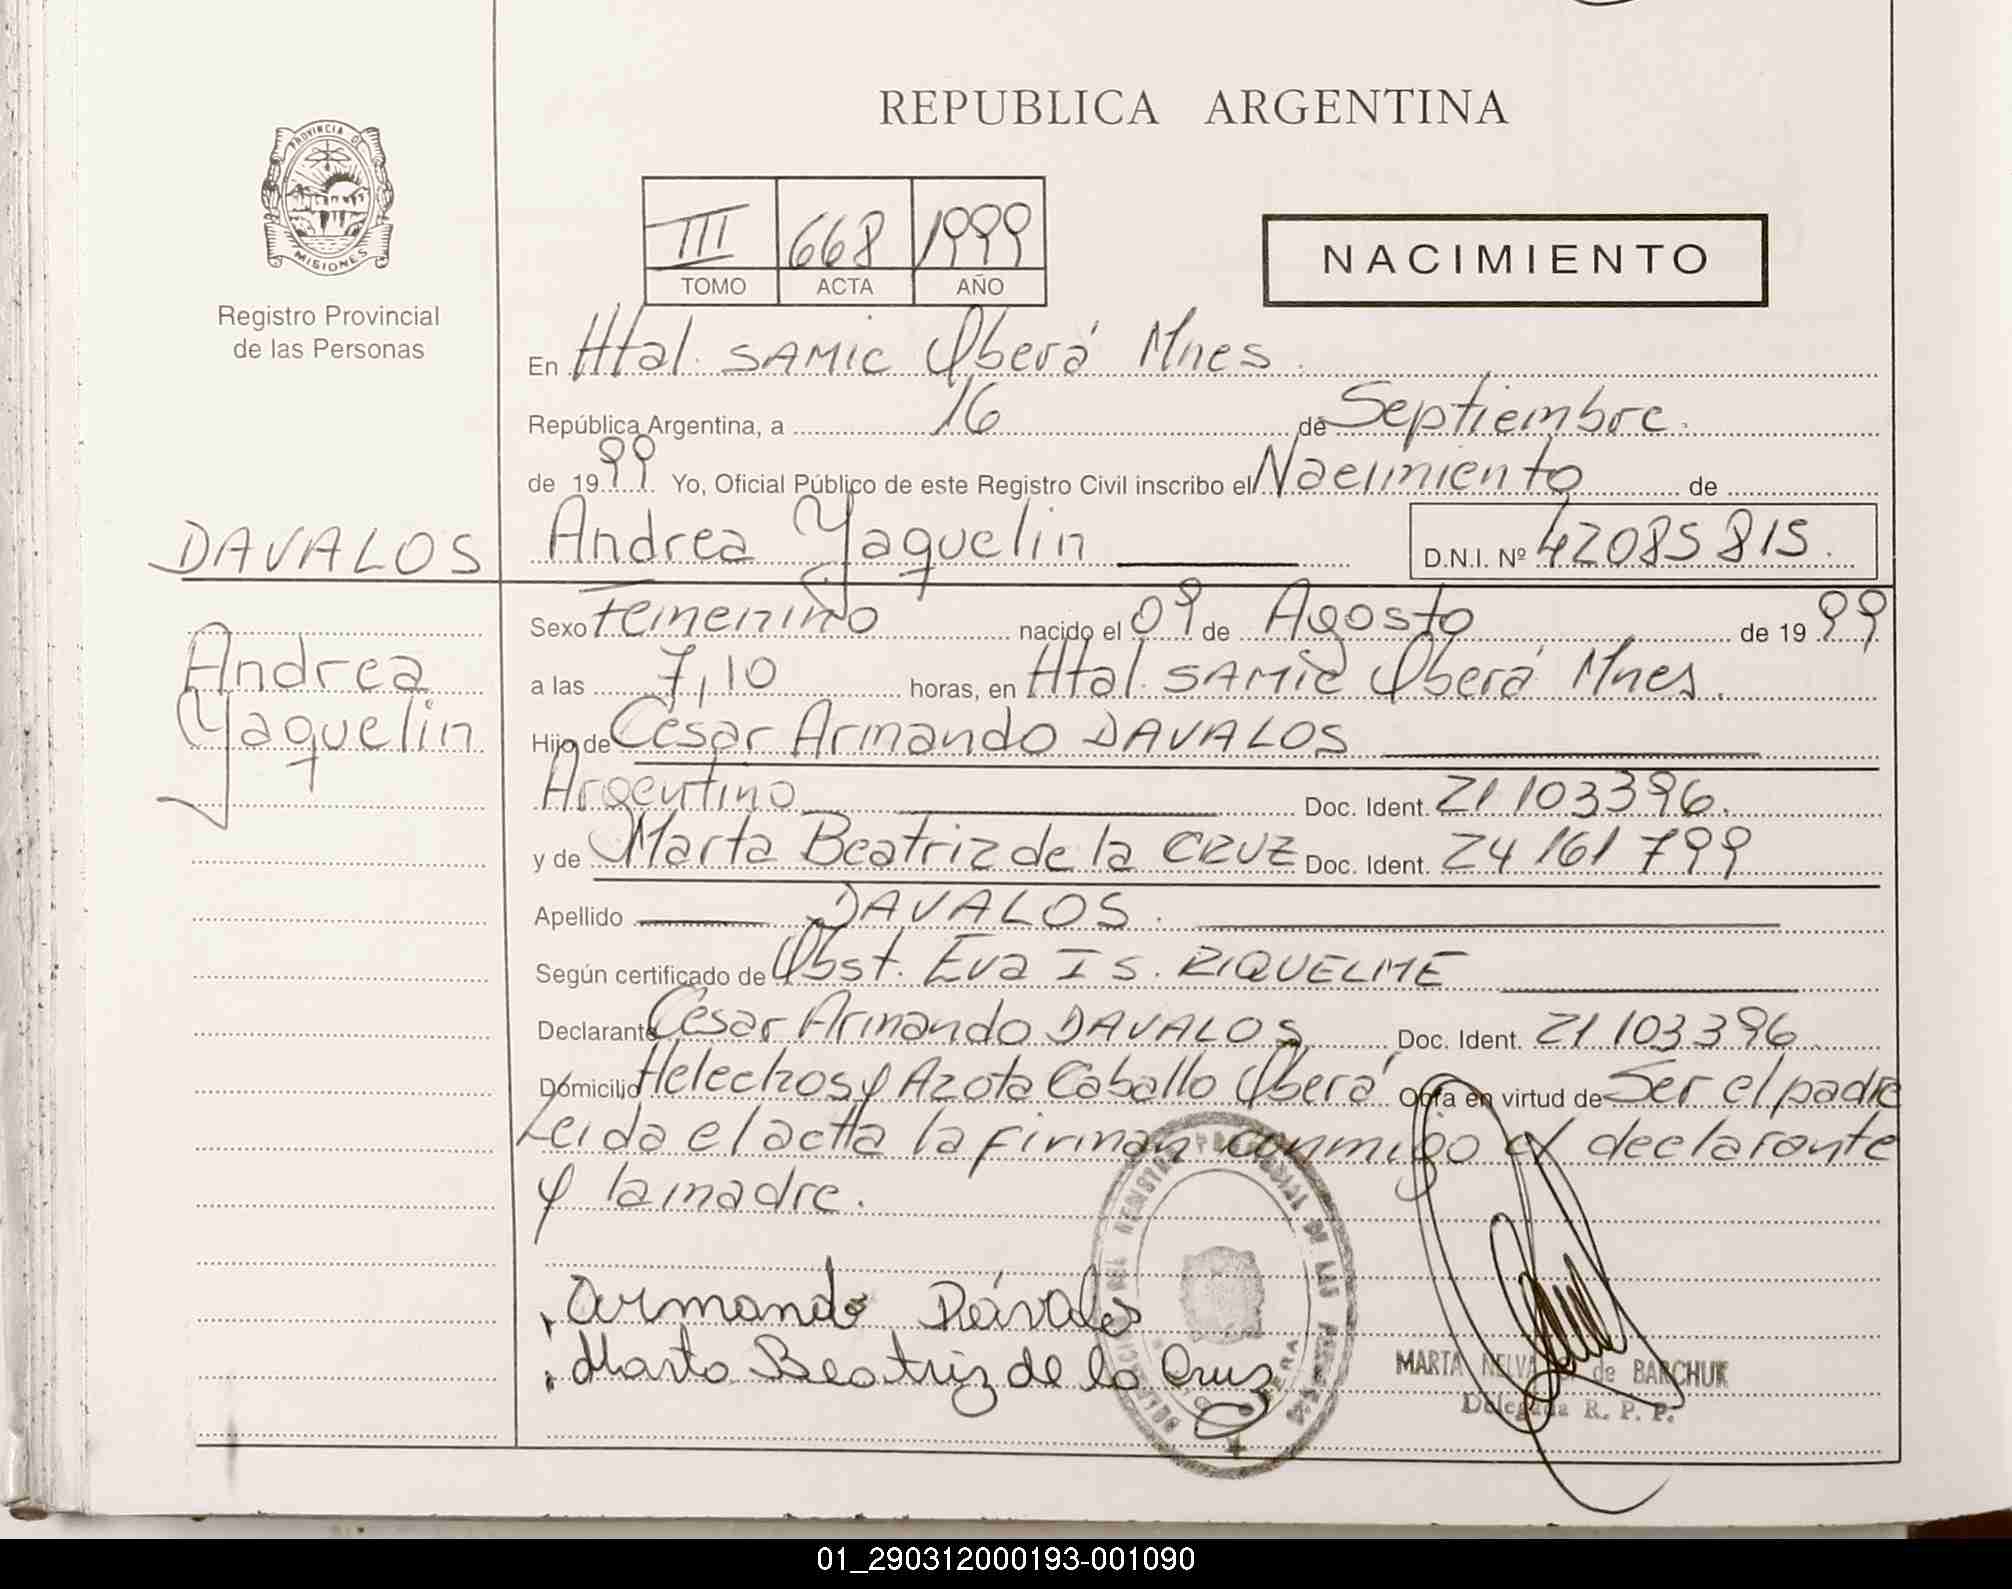 REPUBLICA ARGENTINA
PROVINCIA DE
MISIONES
Registro Provincial
de las Personas
III 668 1999
TOMO ACTA AÑO
NACIMIENTO
En Htal. SAMIC Oberá Mnes.
República Argentina, a 16 de Septiembre.
de 1999 Yo, Oficial Público de este Registro Civil inscribo el Nacimiento de
DAVALOS
Andrea Yaquelin
Andrea Yaquelin D.N.I. Nº 42085815.
Sexo Femenino nacido el 09 de Agosto de 1999
a las 7,10 horas, en Htal. SAMIC Oberá Mnes.
Hijo de César Armando DAVALOS
Argentino Doc. Ident. 21103396.
y de Marta Beatriz de la CRUZ Doc. Ident. 24161799
Apellido DAVALOS.
Según certificado de Obst. Eva Is. RIQUELME
Declarante César Armando DAVALOS Doc. Ident. 21103396
Domicilio Helechos y Azota Caballo Oberá Obra en virtud de Ser el padre
Leida el acta la firman conmigo el declarante
y la madre.
Armando Dávalos
Marta Beatriz de la Cruz
MARTA NELVA de BARCHUK
Delegada R. P. P.
01_290312000193-001090